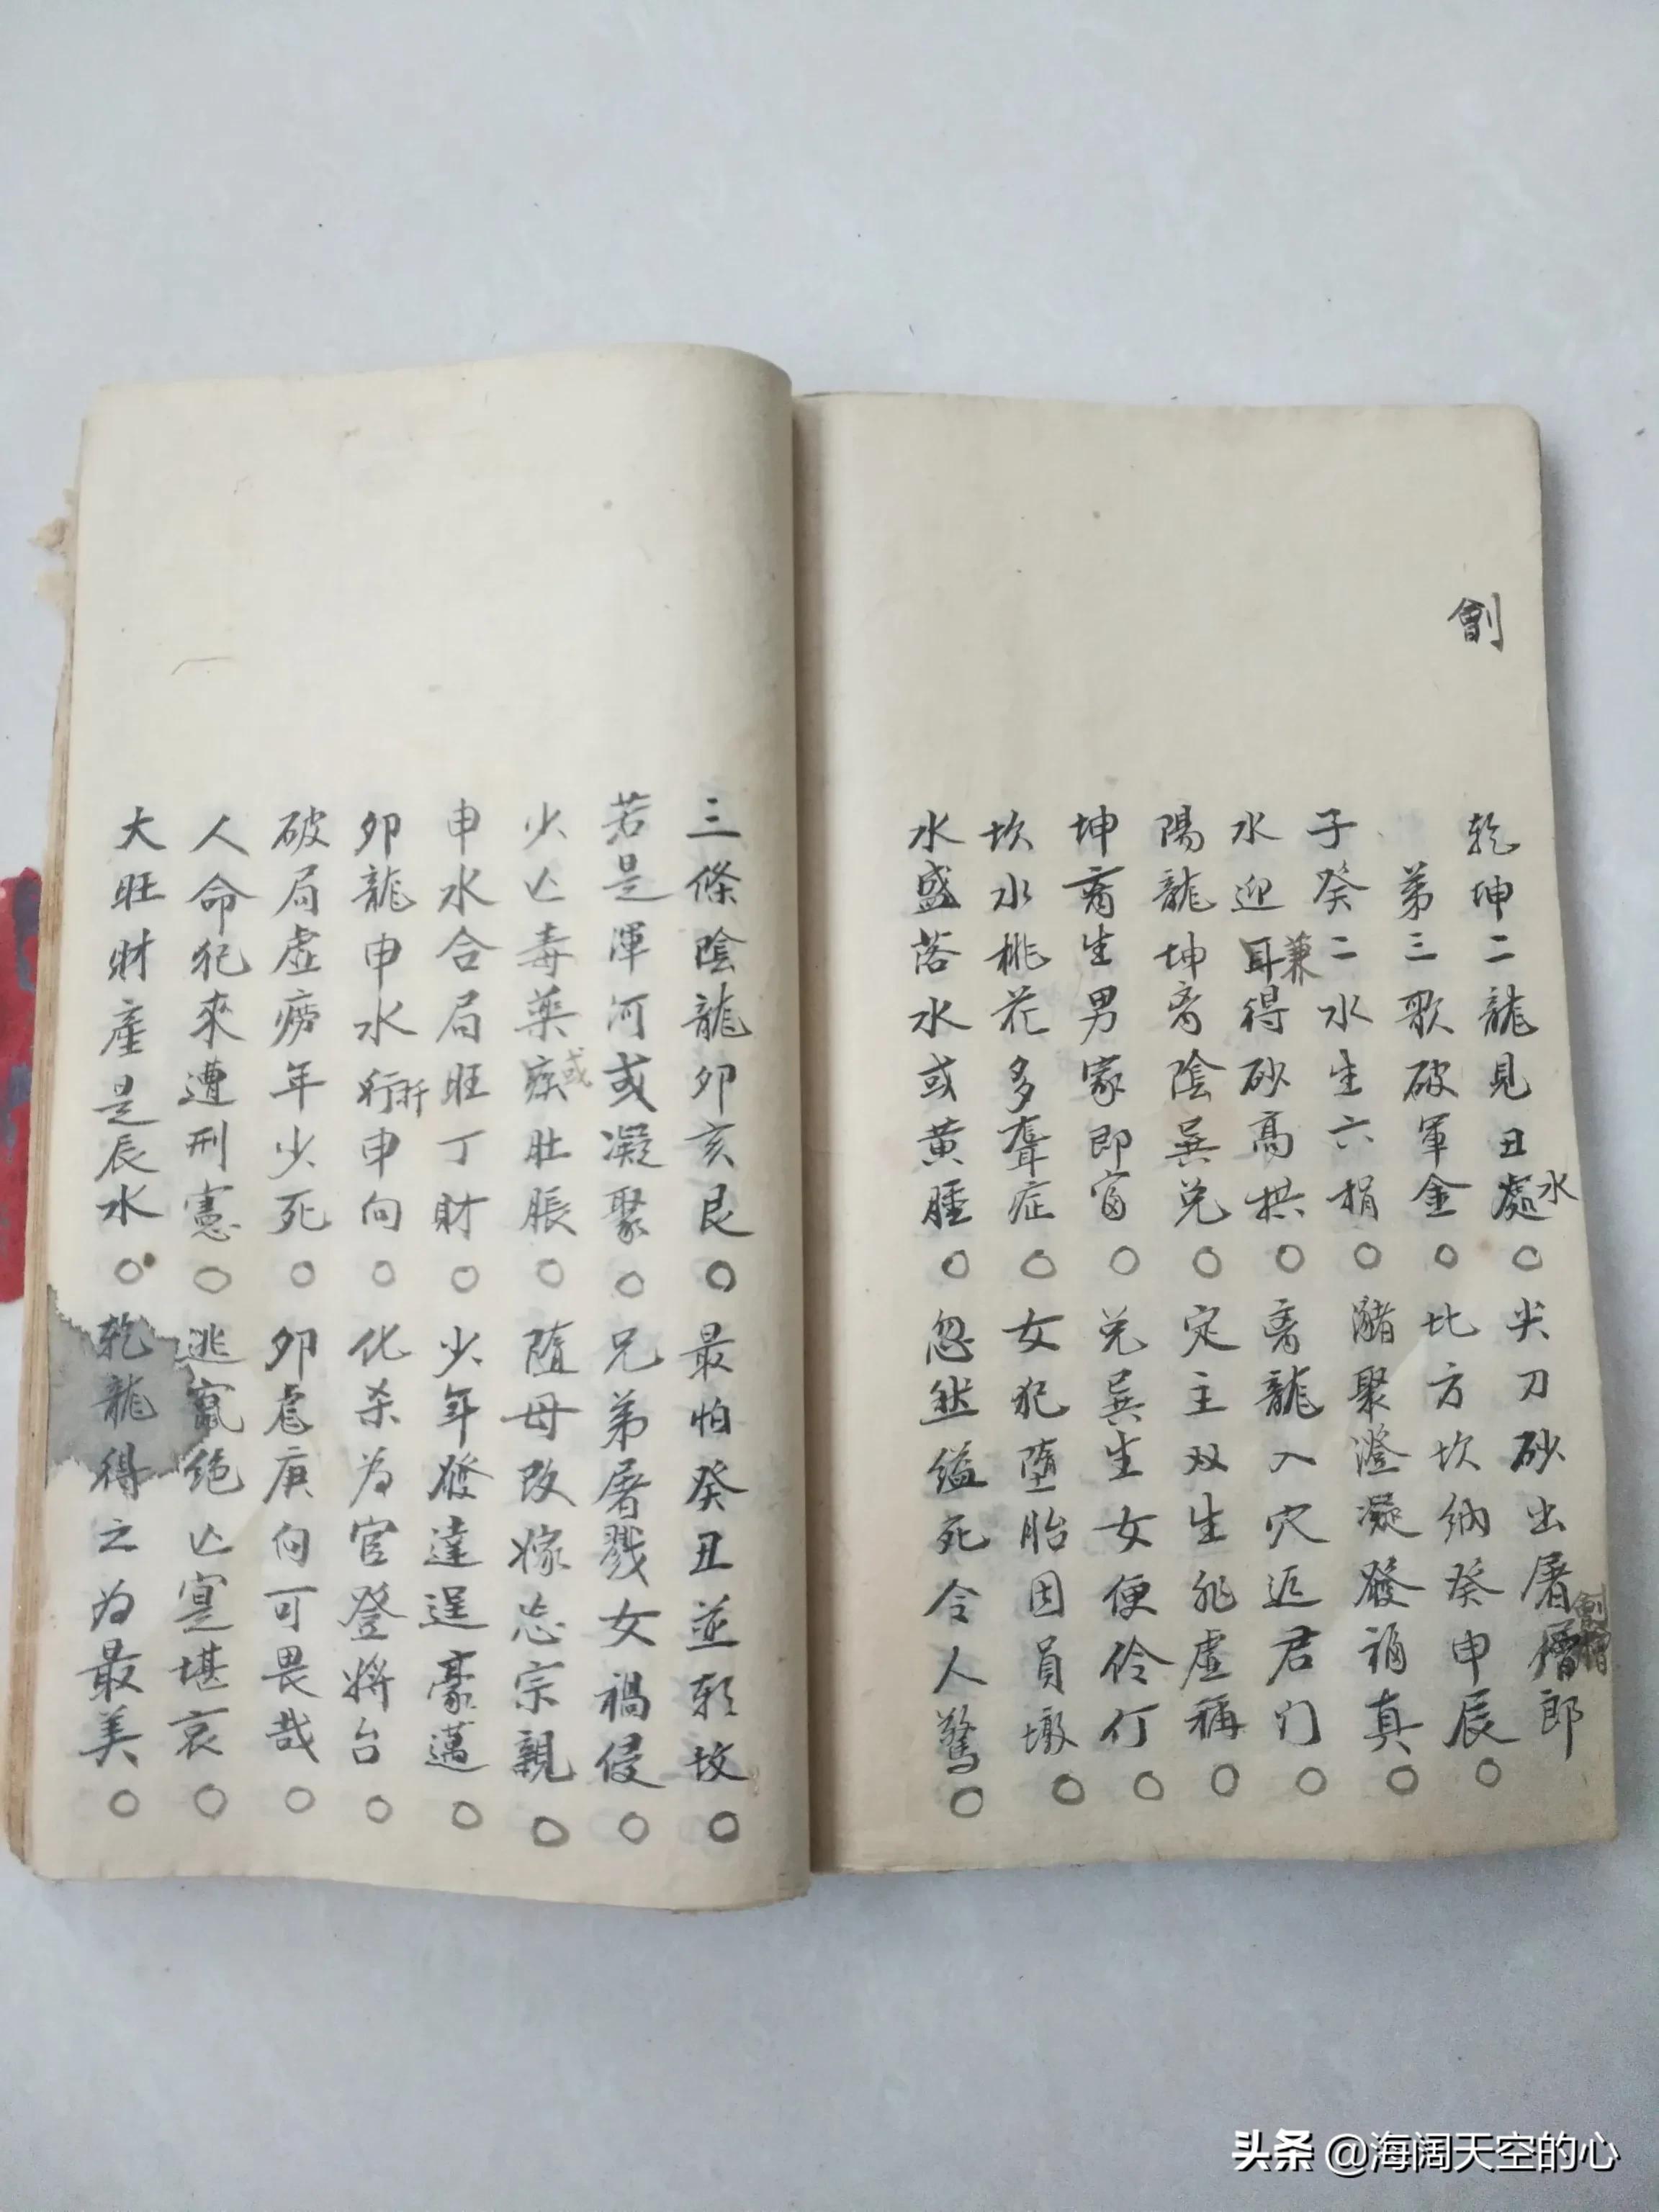 劊
乾坤二龍見丑處水○尖刀砂出屠儈劊郎
第三歌破軍金○比方坎納癸申辰○
子癸二水生六捐○瀦聚澄凝發福真○
水迎耳兼得砂高拱○离龍入穴近君门○
陽龍坤离陰巽兑○定主双生非虛稱○
坤离生男家即富○兑巽生女便伶仃○
坎水桃花多聾症○女犯堕胎因員墩○
水盛落水或黄腫○忽然縊死令人驚○
三條陰龍卯亥艮○最怕癸丑並朝坟○
若是渾河或凝聚○兄弟屠戮女禍侵○
少亡毒藥瘀或肚脹○隨母改嫁忘宗親○
申水合局旺丁財○少年發達逞豪邁○
卯龍申水行折申向○化杀为官登將台○
破局虛痨年少死○卯忌庚向可畏哉○
人命犯來遭刑憲○逃竄绝亡寔堪哀○
大旺財產是辰水○乾龍得之为最美○
头条 @海阔天空的心